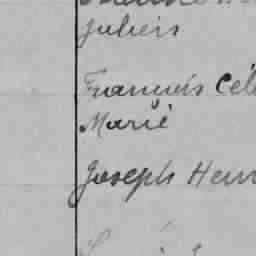 Julien
François Cél
Marie
Joseph Hen